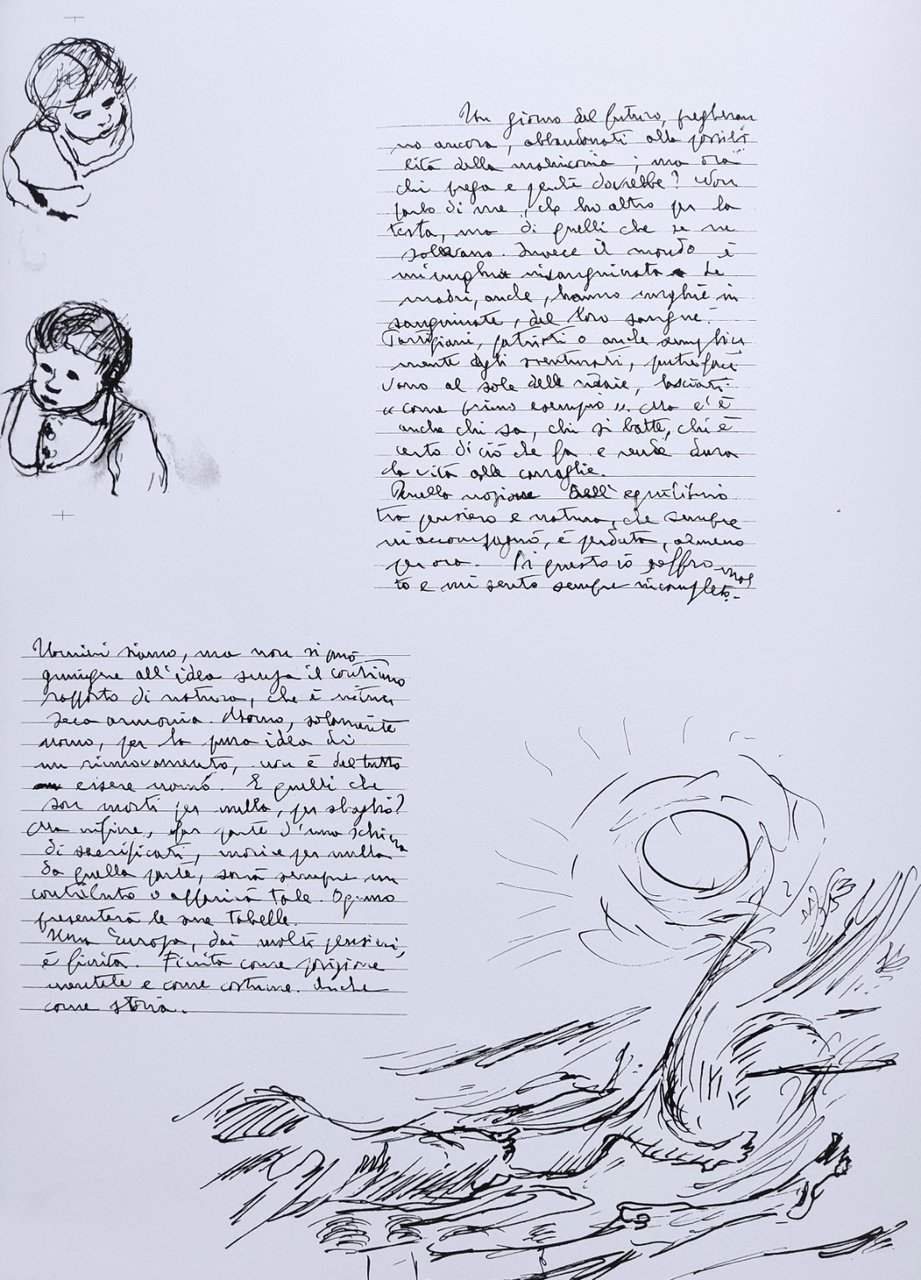 Un giorno del futuro, pregheran
no ancora, abbandonati alla possibi
lità della malinconia; ma ora
chi prega e perché dovrebbe? Non
parlo di me, che ho altro per la
testa, ma di quelli che se ne
solevano. Invece il mondo è
un'unghia insanguinata. Le
madri, anche, hanno unghie in
sanguinate, del loro sangue.
Partigiani, patrioti o anche semplice
mente degli sventurati, putreface
vano al sole delle risaie, lasciati
"come primo esempio". Ma c'è
anche chi sa, chi si batte, chi è
certo di ciò che fa e rende dura
la vita alle canaglie.
Quella nozione dell'equilibrio
tra pensiero e natura, che sempre
mi accompagnò, è perduta, almeno
per ora. Di questo io soffro mol
to e mi sento sempre incompleto.
Uomini siamo, ma non si può
giungere all'idea senza il continuo
rapporto di natura, che è intrin
seca armonia. Uomo, solamente
uomo, per la pura idea di
un rinnovamento, non è del tutto
essere uomo. E quelli che
son morti per nulla, per sbaglio?
Ma infine, far parte d'una schiera
di sacrificati, morire per nulla
da quella parte, sarà sempre un
contributo o apparirà tale. Ognuno
presenterà le sue tabelle.
Una Europa, dai molti pensieri,
è finita. Finita come posizione
mentale e come costume. Anche
come storia.